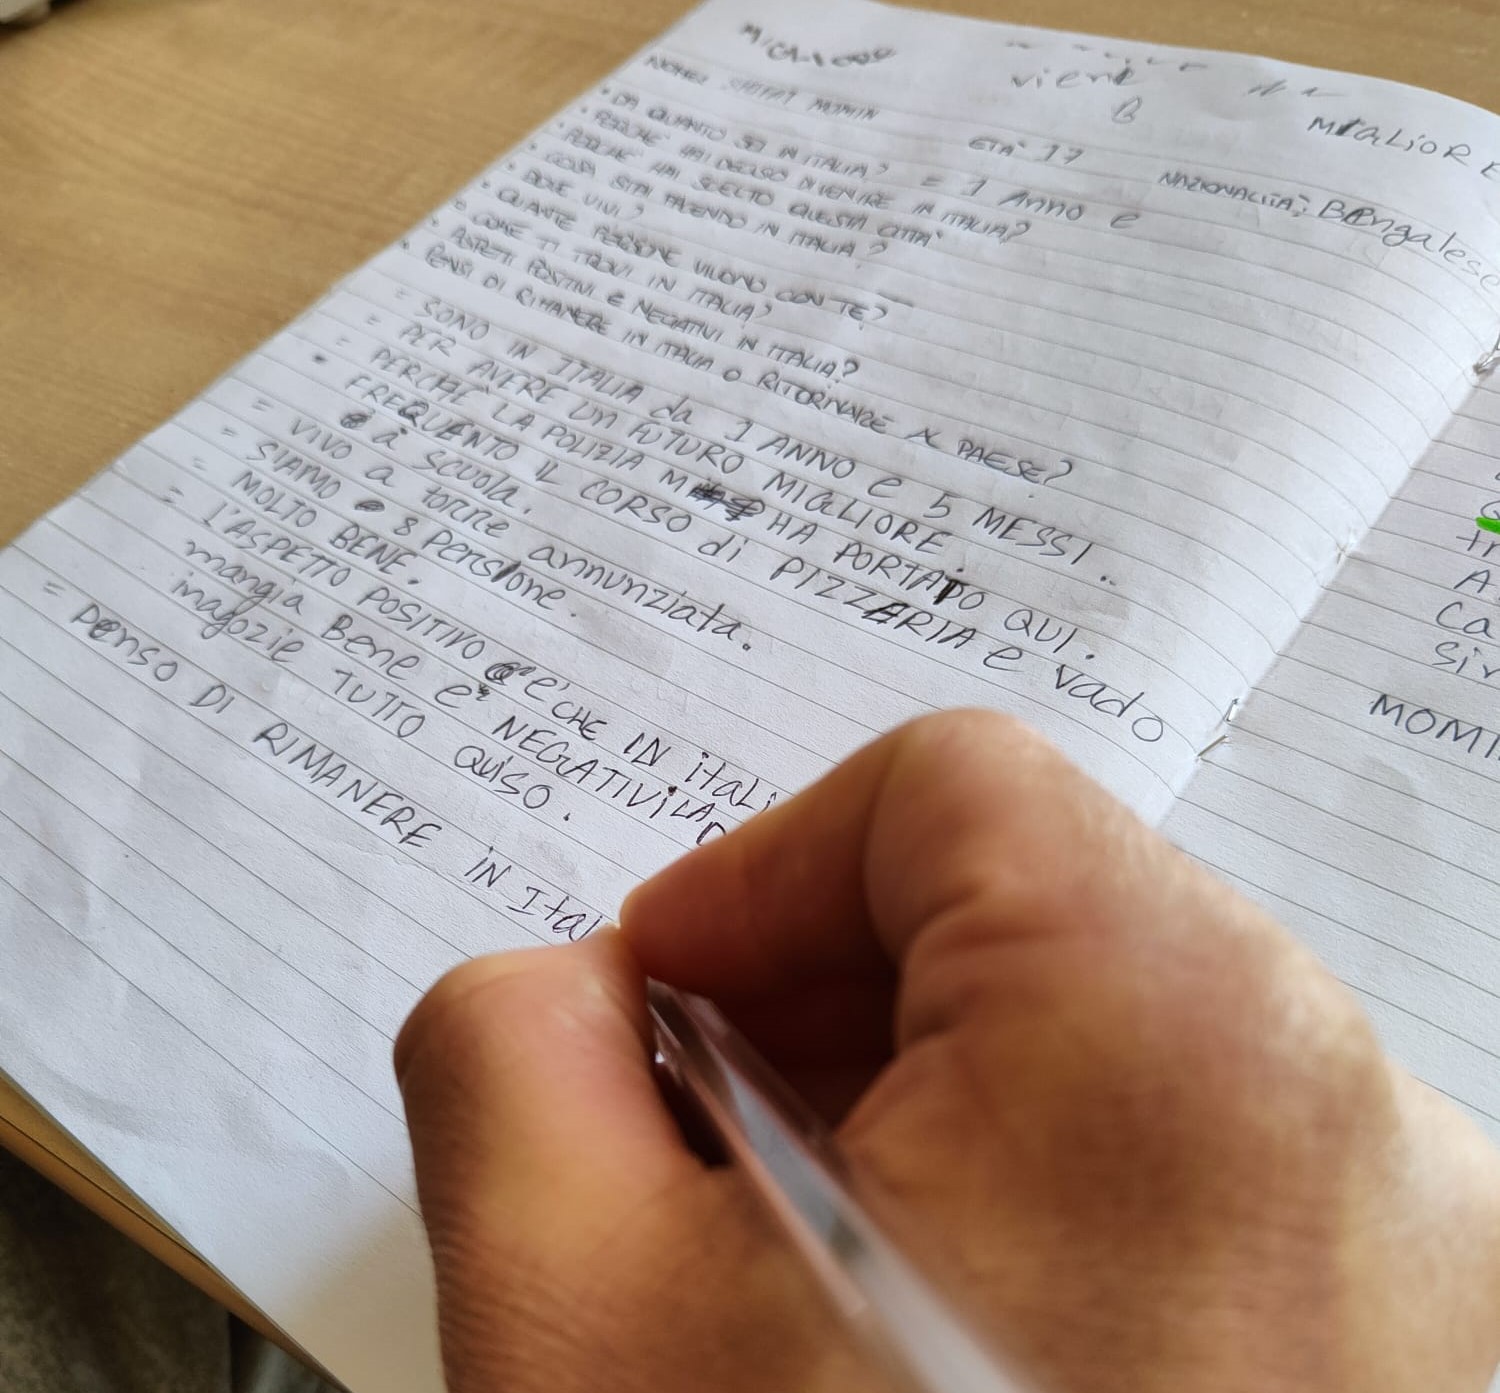 vieni
B
MIGLIORE
NOME: MOMIN
ETA' 17
NAZIONALITA: BANgalese
• DA QUANTO SEI IN ITALIA? = 1 Anno e
• PERCHE' HAI DECISO DI VENIRE IN ITALIA?
• PERCHE' HAI SCELTO QUESTA CITTA'
• COSA STAI FACENDO IN ITALIA?
• DOVE VIVI?
• QUANTE PERSONE VIVONO CON TE?
• COME TI TROVI IN ITALIA?
• ASPETTI POSITIVI E NEGATIVI IN ITALIA?
• PENSI DI RIMANERE IN ITALIA O RITORNARE AL PAESE?
= SONO IN ITALIA da 1 ANNO e 5 MESSI..
= PER AVERE UN FUTURO MIGLIORE.
= PERCHE' LA POLIZIA M HA PORTATO QUI.
FREQUENTO IL CORSO di PIZZERIA e vado
a SCUOLA.
= VIVO a torre annunziata.
= SIAMO 8 Persione.
= MOLTO BENE.
= L'ASPETTO POSITIVO e' CHE IN itali
mangia Bene e' NEGATIVI LA
inagozie TUTTO QUiSO.
= Penso DI RIMANERE IN Ital
A
Ca
Sir
MOMI